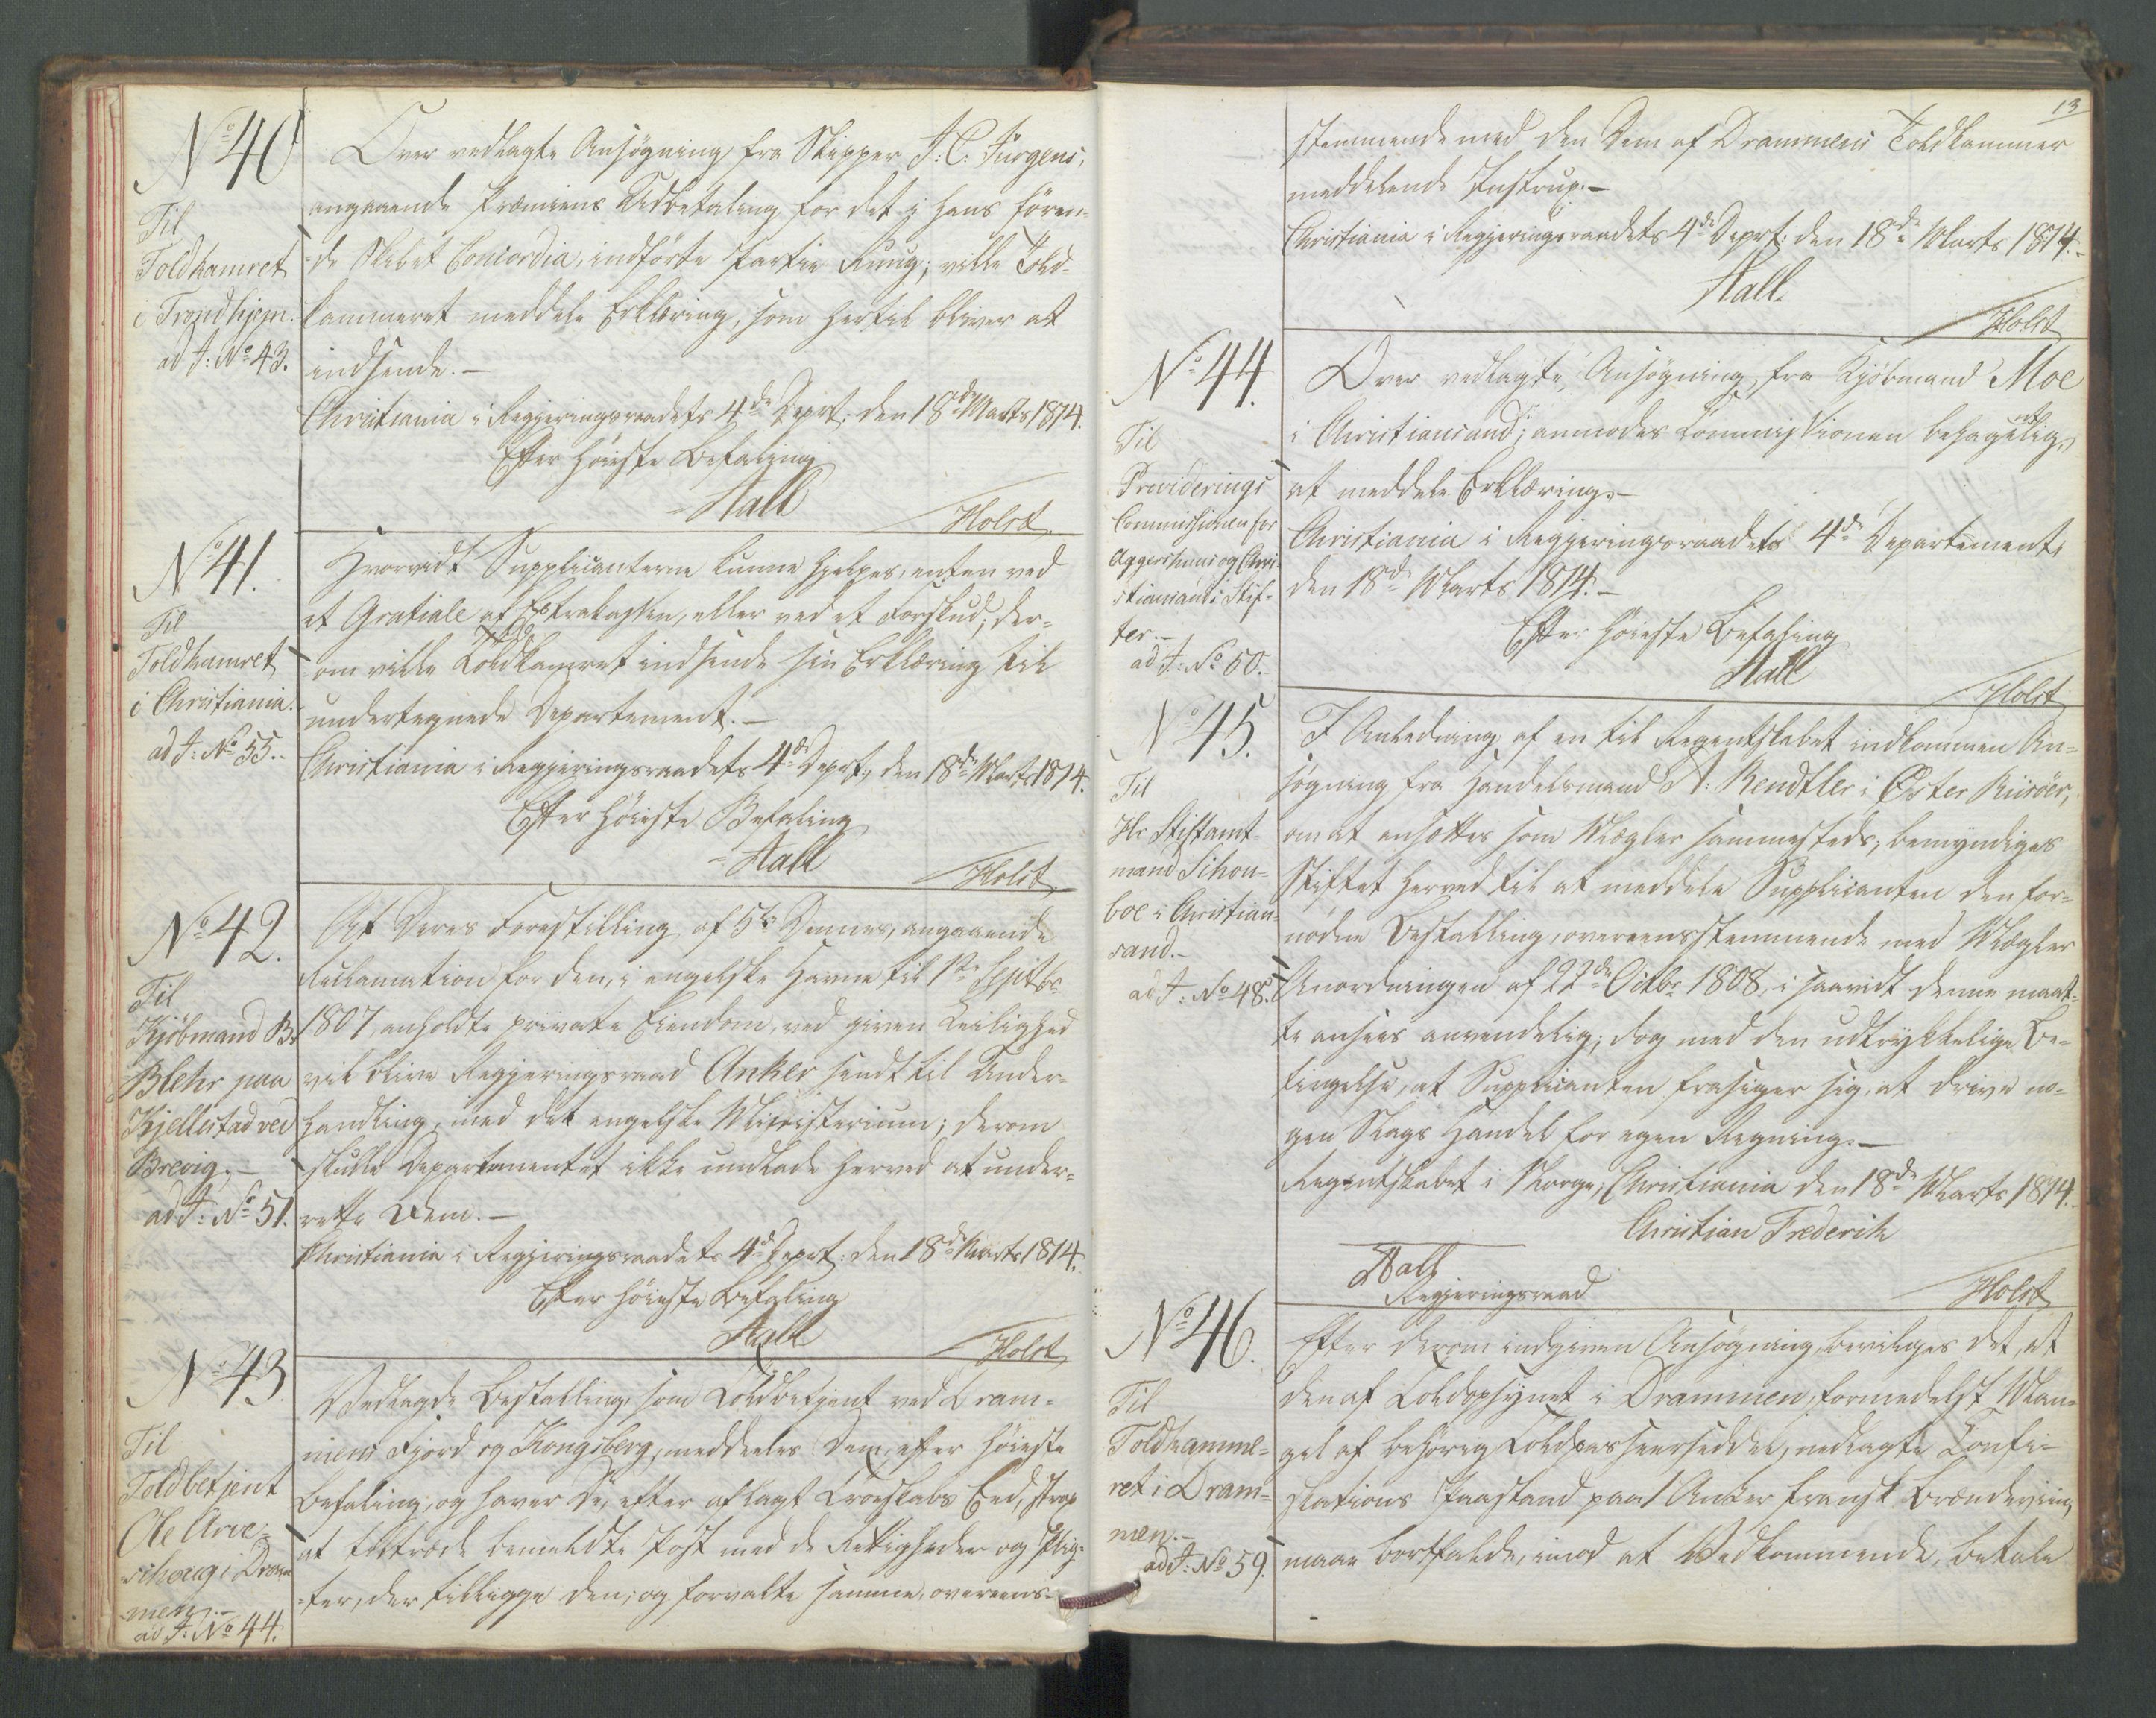 No 40
Til
Toldkamret
i Trondhjem.
ad J: No 43.
Over vedlagte Ansøgning fra Skipper J: C: Jürgens,
angaaende Præmiens Udbetaling for det i hans føren-
de Skibet Concordia, indførte Partie Ruug; ville Told-
kammeret meddele Erklæring, som hertil bliver at
indsende.-
Christiania i Regjeringsraadets 4de Deprt: den 18de Marts 1814.
Efter høieste Befaling
Aall
Holst
No 41.
Til
Toldkamret
i Christiania.
ad J: No 55.
Hvorvidt Supplicanterne kunne hjelpes, enten ved
et Gratiale af Extrakassen, eller ved et Forskud; der-
om ville Toldkamret indsende sin Erklæring til
undertegnede Departement.-
Christiania i Regjeringsraadets 4de Deprt, den 18de Marts 1814.
Efter høieste Befaling
Aall
Holst
No 42.
Til
Kjöbmand B.
Blehr paa
Kjellestad ved
Brevig.-
ad J: No 51.
At Deres Forestilling af 5te Dennes, angaaende
Reclamation for den, i engelske Havne til 1ste Septbr
1807 anholdte private Eiendom, ved given Leilighed
vil blive Regjeringsraad Anker sendt til Under-
handling, med det engelske Ministerium; derom
skulle Departementet ikke undlade herved at under-
rette Dem.-
Christiania i Regjeringsraadets 4de Deprt: den 18de Marts 1814.
Efter høieste Befaling
Aall
Holst
No 43.
Til
Toldbetjent
Ole Arve-
schoug i Dram
men.-
ad J: No 44.
Vedlagde Bestalling, som Toldbetjent ved Dram-
mens Fjord og Kongsberg, meddeeles Dem, efter høieste
Befaling, og haver De, efter aflagt Troeskabs Eed, strax
at tiltræde bemeldte Post med de Rettigheder og Plig-
ter, der tilligge den; og forvalte samme, overeens-
13
stemmende med den Dem af Drammens Toldkammer
meddelende Instrux.-
Christiania i Regjeringsraadets 4de Deprt: den 18de Marts 1814.-
Aall.
Holst
No 44.
Til
Providerings
Commissionen for
Aggershuus og Chri-
stiansands Stif-
ter.-
ad J: No 50.
Over vedlagte Ansøgning fra Kjöbmand Moe
i Christiansand; anmodes Commissionen behageligt,
at meddele Erklæring.-
Christiania i Regjeringsraadets 4de Departement,
den 18de Marts 1814.-
Efter høieste Befaling
Aall
Holst
No 45.
Til
Hr Stiftamt-
mand Schou-
boe i Christian-
sand.-
ad J: No 48.
I Anledning af en til Regentskabet indkommen An-
søgning fra Handelsmand A: Rendtler i Øster Riisöer,
om at ansættes som Mægler sammesteds, bemyndiges
Stiftet herved til at meddele Supplicanten den for-
nødne Bestalling, overeensstemmende med Mægler
Anordningen af 22de Octbr 1808, i saavidt denne maat-
te ansees anvendelig; dog med den udtrykkelige Be-
tingelse, at Supplicanten frasiger sig, at drive no-
gen Slags Handel for egen Regning.-
Regentskabet i Norge, Christiania den 18de Marts 1814.-
Christian Frederik
Aall
Regjeringsraad
Holst
No 46.
Til
Toldkamme-
ret i Dram-
men.-
ad J: No 59.
Efter derom indgiven Ansøgning, bevilges det, at
den af Toldopsynet i Drammen, formedelst Man-
gel af behørig Toldpasseerseddel, nedlagte Confi-
skations Paastand paa 1 Anker fransk Brændeviin,
maae bortfalde, imod at Vedkommende, betale